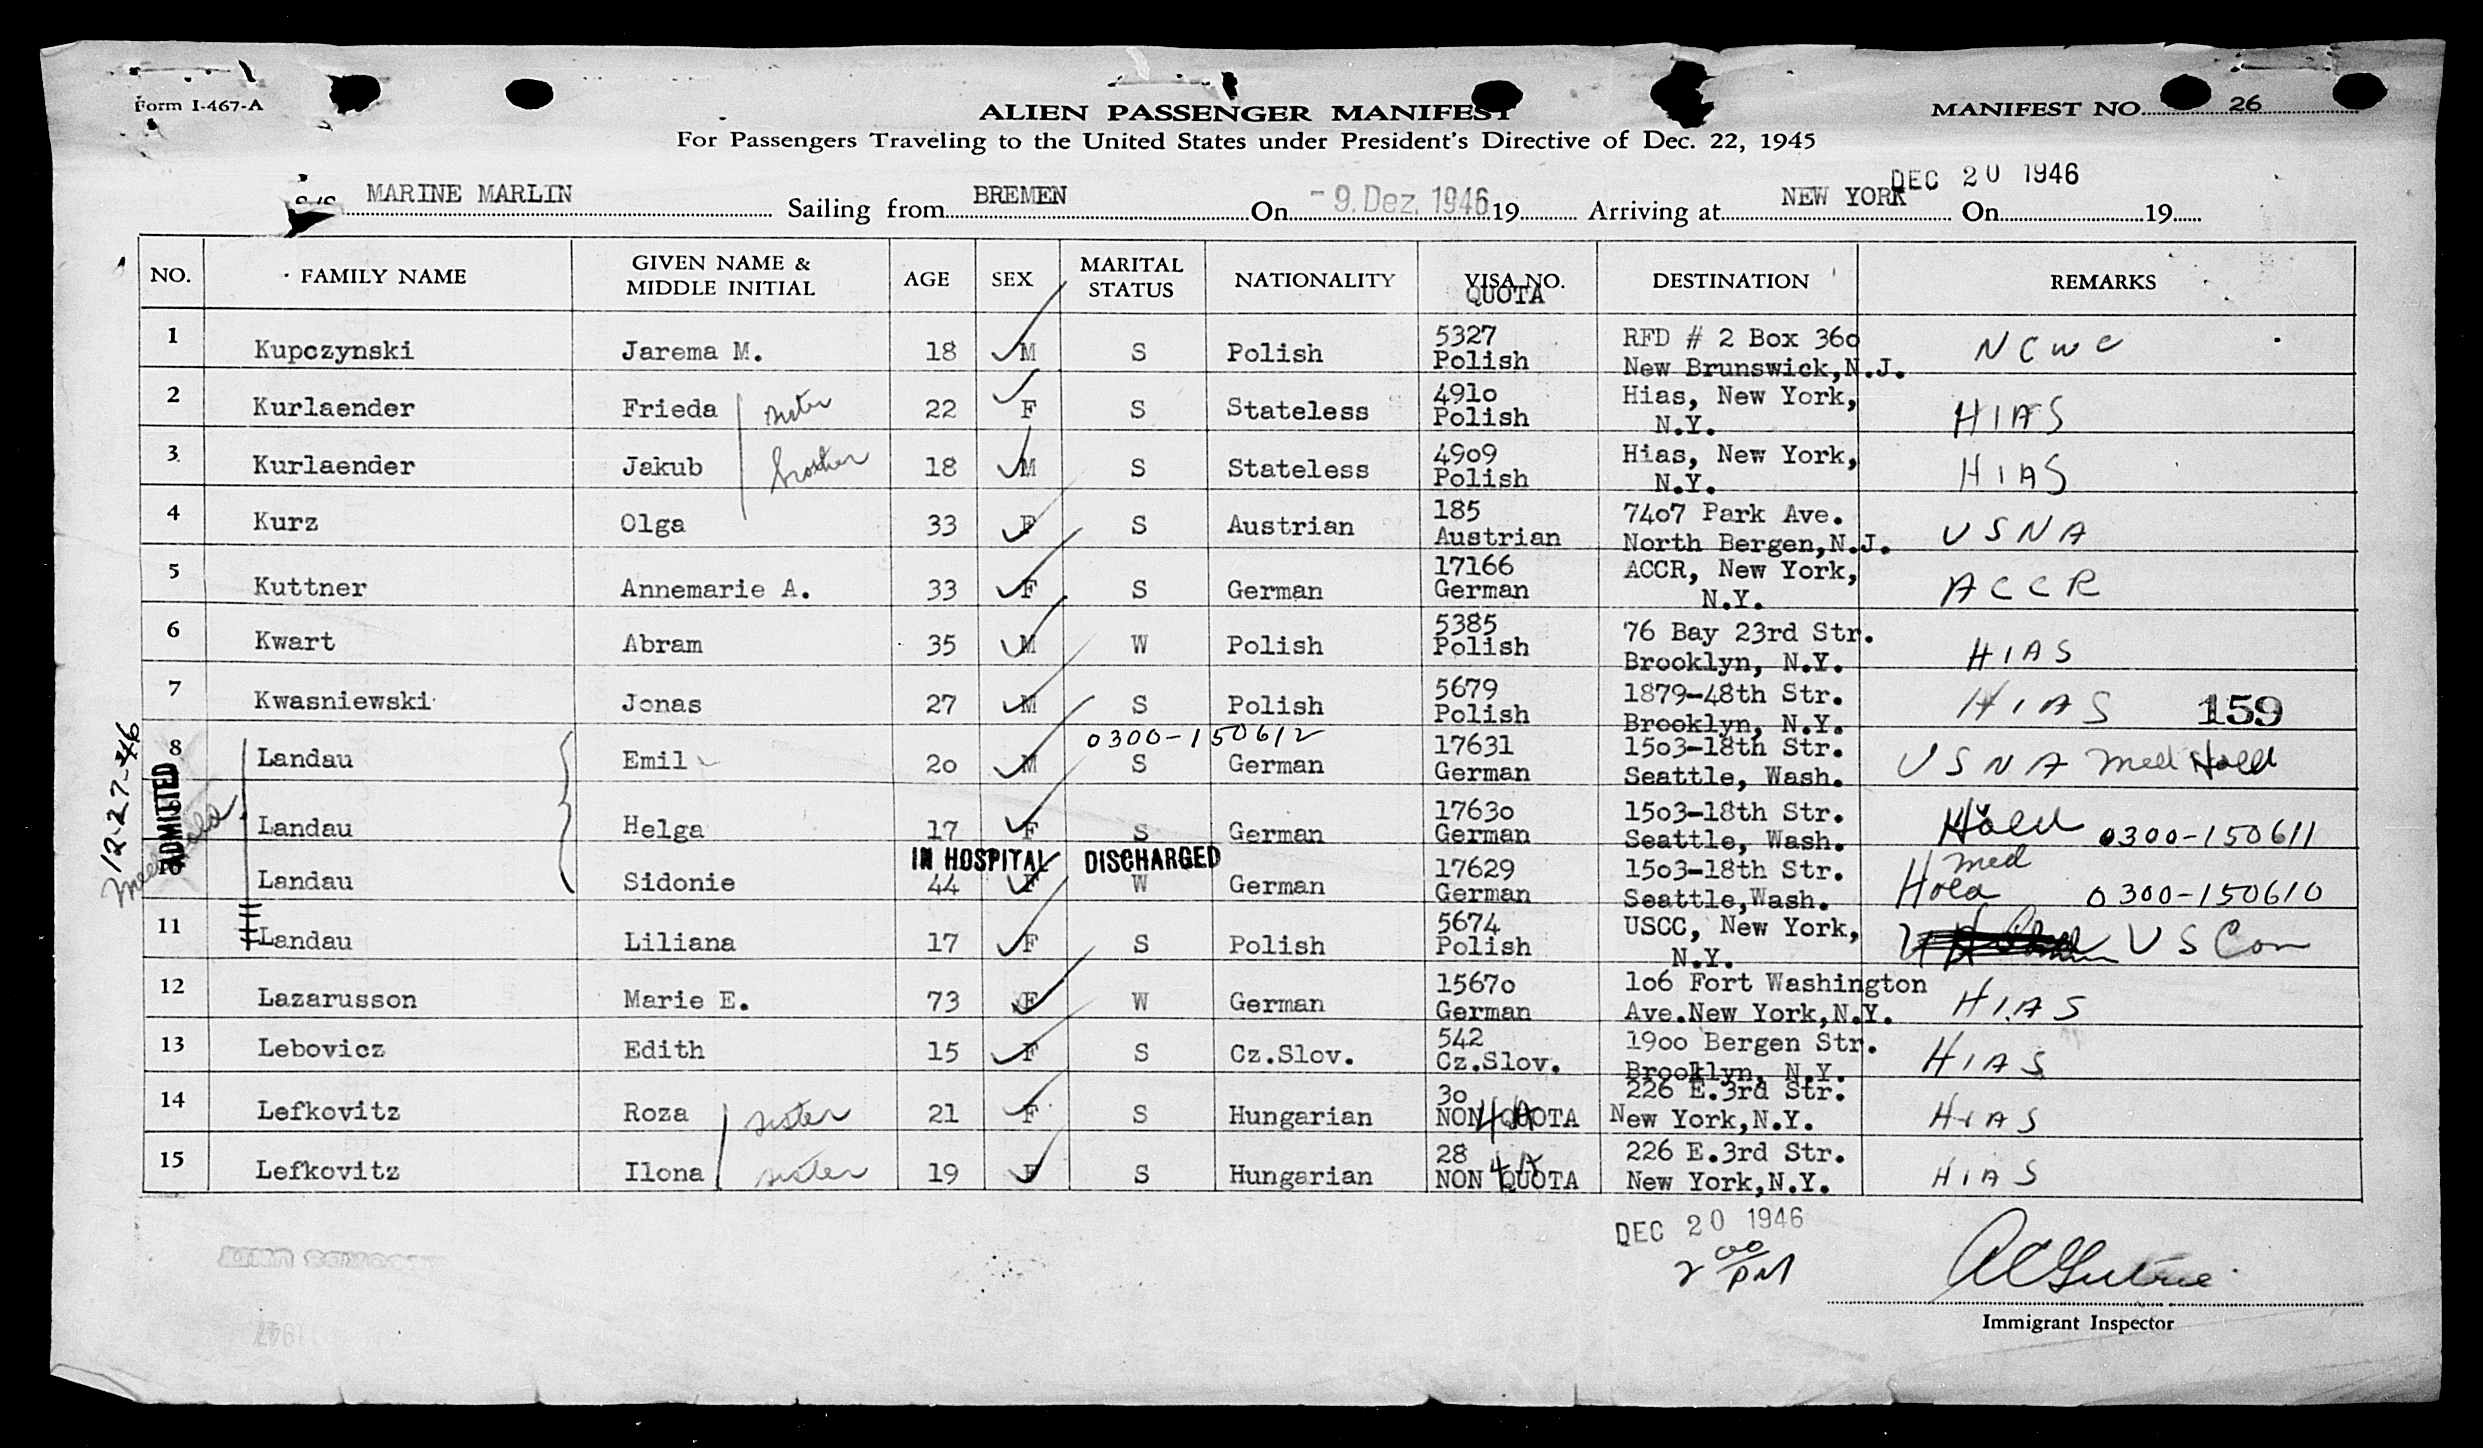 Form I-467-A
ALIEN PASSENGER MANIFEST
MANIFEST NO. 26
For Passengers Traveling to the United States under President's Directive of Dec. 22, 1945
S/S MARINE MARLIN Sailing from BREMEN On - 9. Dez. 1946 19 Arriving at NEW YORK On DEC 20 1946 19
NO. FAMILY NAME GIVEN NAME & MIDDLE INITIAL AGE SEX MARITAL STATUS NATIONALITY VISA NO. QUOTA DESTINATION REMARKS
1 Kupczynski Jarema M. 18 M S Polish 5327 Polish RFD # 2 Box 360 New Brunswick,N.J. NCWC
2 Kurlaender Frieda sister 22 F S Stateless 4910 Polish Hias, New York, N.Y. HIAS
3 Kurlaender Jakub brother 18 M S Stateless 4909 Polish Hias, New York, N.Y. HIAS
4 Kurz Olga 33 F S Austrian 185 Austrian 7407 Park Ave. North Bergen,N.J. USNA
5 Kuttner Annemarie A. 33 F S German 17166 German ACCR, New York, N.Y. ACCR
6 Kwart Abram 35 M W Polish 5385 Polish 76 Bay 23rd Str. Brooklyn, N.Y. HIAS
7 Kwasniewski Jonas 27 M S Polish 5679 Polish 1879-48th Str. Brooklyn, N.Y. HIAS 159
0300-150612
8 Landau Emil 20 M S German 17631 German 1503-18th Str. Seattle, Wash. USNA Med Hold
12-27-46 ADMITTED Med Hold
Landau Helga 17 F S German 17630 German 1503-18th Str. Seattle, Wash. Hold 0300-150611
IN HOSPITAL DISCHARGED
10 Landau Sidonie 44 F W German 17629 German 1503-18th Str. Seattle,Wash. Med Hold 0300-150610
11 Landau Liliana 17 F S Polish 5674 Polish USCC, New York, N.Y. US Com
12 Lazarusson Marie E. 73 F W German 15670 German 106 Fort Washington Ave.New York,N.Y. HIAS
13 Lebovicz Edith 15 F S Cz.Slov. 542 Cz.Slov. 1900 Bergen Str. Brooklyn, N.Y. HIAS
14 Lefkovitz Roza sister 21 F S Hungarian 30 NON QUOTA 226 E.3rd Str. New York,N.Y. HIAS
15 Lefkovitz Ilona sister 19 F S Hungarian 28 NON QUOTA 226 E.3rd Str. New York,N.Y. HIAS
DEC 20 1946
2 00 PM
Immigrant Inspector